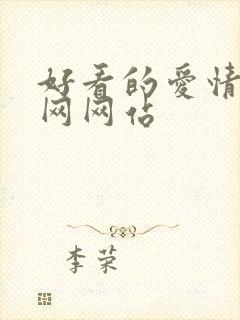 好看的爱情
网网站
李荣